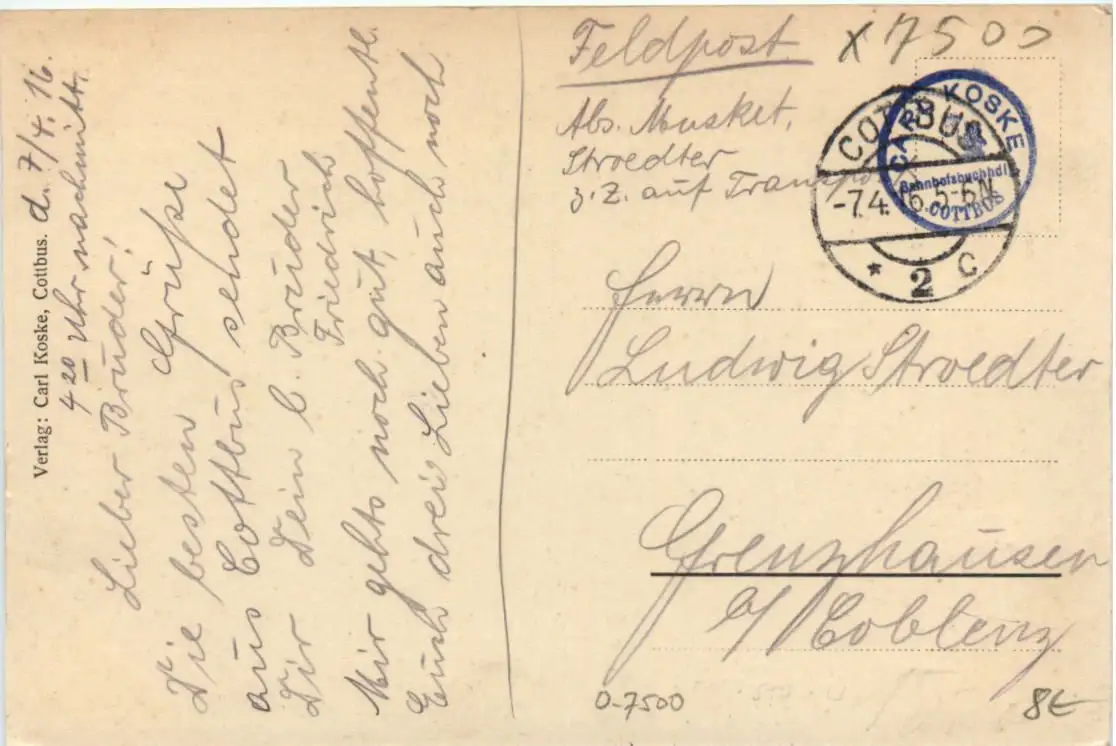 Verlag: Carl Koske, Cottbus. d. 7/4. 16.
4 20 Uhr nachmitt.
Lieber Bruder!
Die besten Grüße
aus Cottbus sendet
Dir Dein l. Bruder
Friedrich
Mir gehts noch gut, hoffentl.
Euch drei Lieben auch noch
Feldpost.
x 7500
Abs. Musket.
Stroedter
z. Z. auf Transpo
COTTBUS
-7.4.16.5-6N
* 2 C
CARL KOSKE
Bahnhofsbuchhdl.
COTTBUS
Herrn
Ludwig Stroedter
Grenzhausen
b/ Coblenz
0-7500
8€